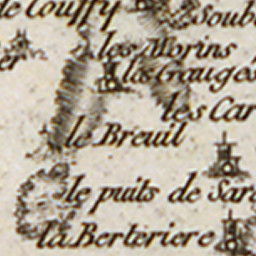 de Couffy
Soub
les Morins
er
la Gauges
les Car
le Breuil
le puits de Sar
la Berteriere